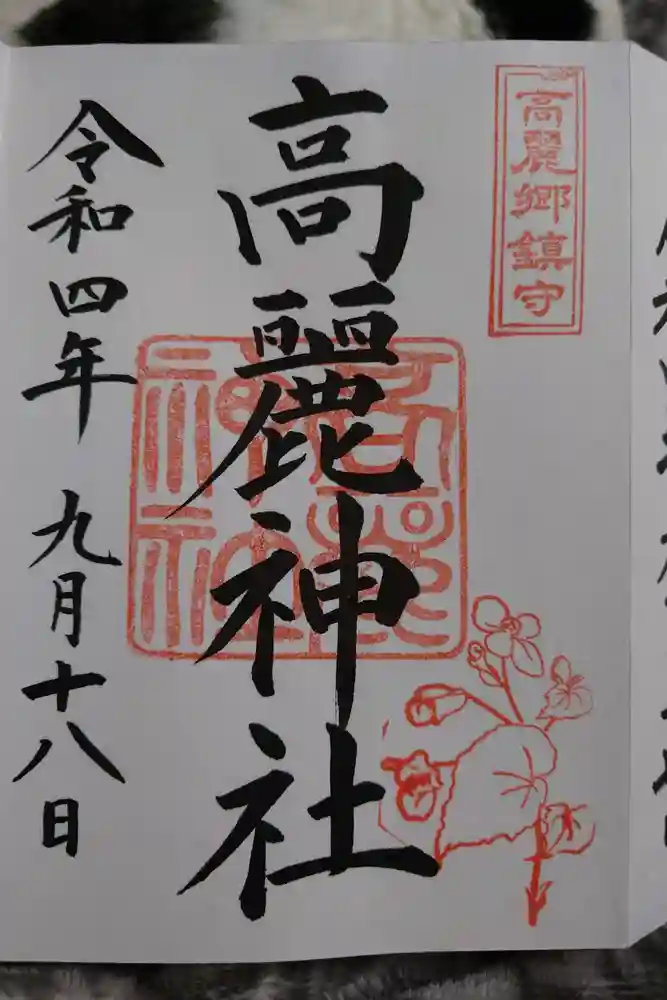 高麗郷鎮守
高麗神社
令和四年九月十八日